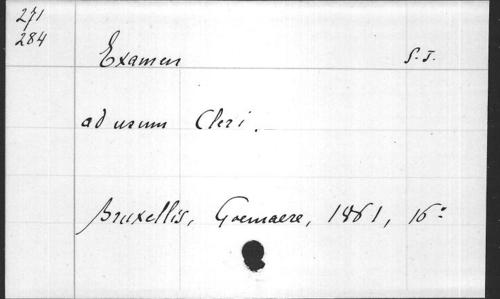 271
284
Examen S.J.
ad usum Cleri.
Bruxellis, Goemaere, 1861, 16º